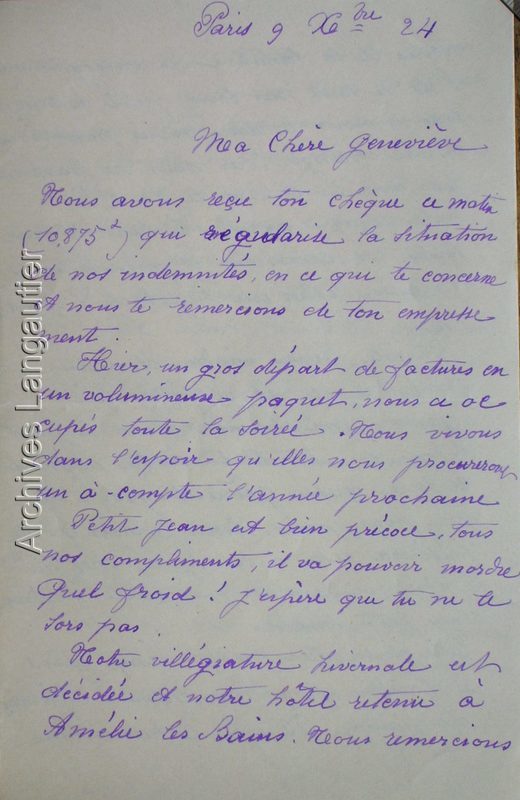 Paris 9 Xbre 24
Ma Chère Geneviève
Nous avons reçu ton chèque ce matin
(10,875²) qui régularise la situation
de nos indemnités, en ce qui te concerne
et nous te remercions de ton empresse
ment.
Hier, un gros départ de factures en
un volumineuse paquet, nous a oc
cupés toute la soirée. Nous vivons
dans l'espoir qu'elles nous procureront
un à-compte l'année prochaine
Petit Jean est bien précoce, tous
nos compliments, il va pouvoir mordre
Quel froid ! J'espère que tu ne le
sors pas.
Notre villégiature hivernale est
décidée et notre hôtel retenu à
Amélie les Bains. Nous remercions
Archives Langautier